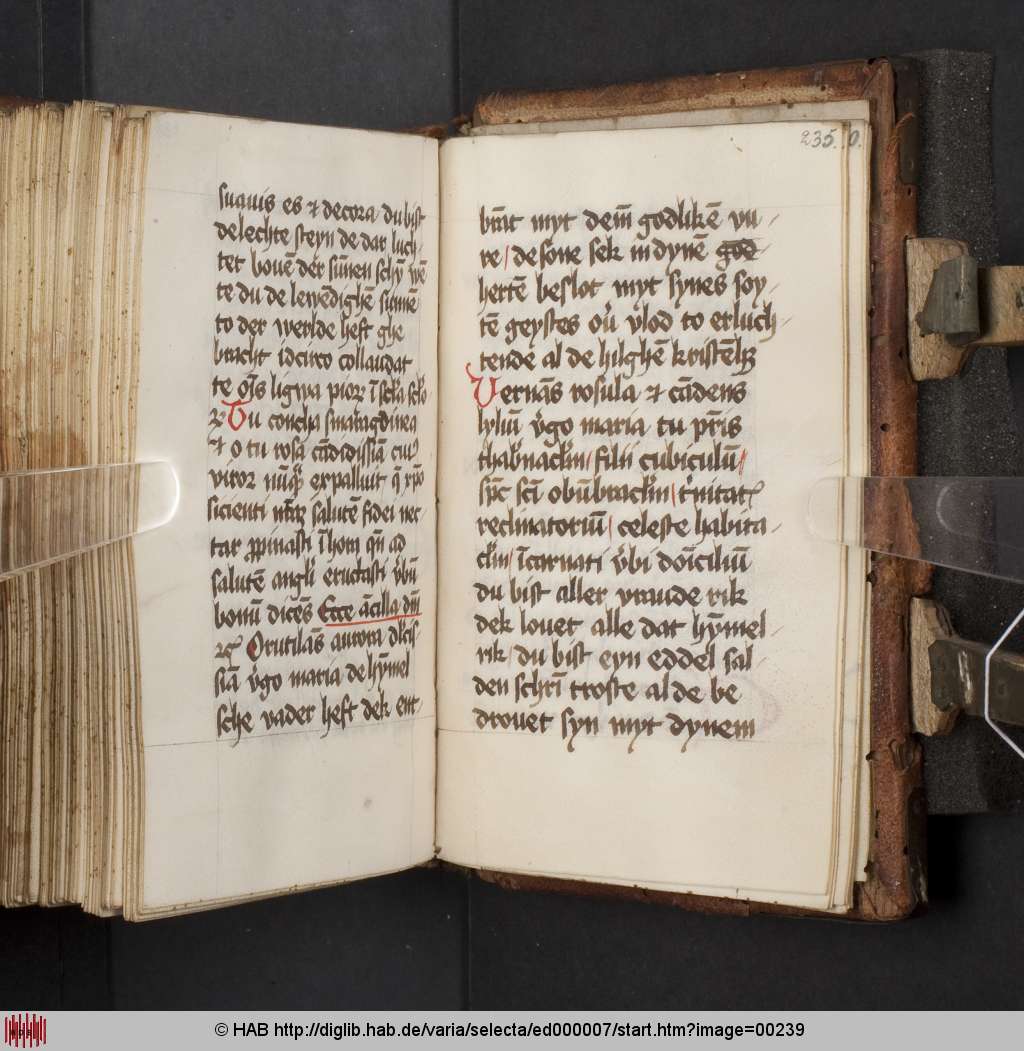 suauis es ⁊ decora du bist
de lechte steyn de dar luch-
tet bouē der sūnen schȳ wē
te du de lewedighē
to der werlde heft ghe
bracht idcirco collaudat
te
Tu concha smaragdinea
⁊ o tu rosa cādidissīa cuiꝰ
viror nūq̄ expalluit q̄
sicienti salutē fidei nec
tar ꝓpinasti
salutē angl'i eructasti v̓bū
bonū dicēs Ecce ācilla dn̄i
Orutilās aurora dl̓cis-
sīa v̓go maria de hȳmel
sche vader heft dek ent-
235.
brāt myt dem̄ godlikē vu-
re / de sone sek in dynē god
hertē beslot myt synes soy-
tē geystes ou̓ v̓lod to erluch-
tende al de hilghē kristēh̓
Vernās rosula ⁊ cādens
lyliū v̓go maria tu pr̄is
thab̓nacl̄m / filii cubiculū /
spc̄ scī obūbracl̄m / t̓nitatꝭ
reclinatoriū / celeste habita-
cl̄m / īcarnati v̓bi domīciliū
du bist aller vraude rik
dek louet alle dat hȳmel-
rik / du bist eyn eddel sal-
den schrī troste al de be
drouet syn myt dynem
© HAB http://diglib.hab.de/varia/selecta/ed000007/start.htm?image=00239